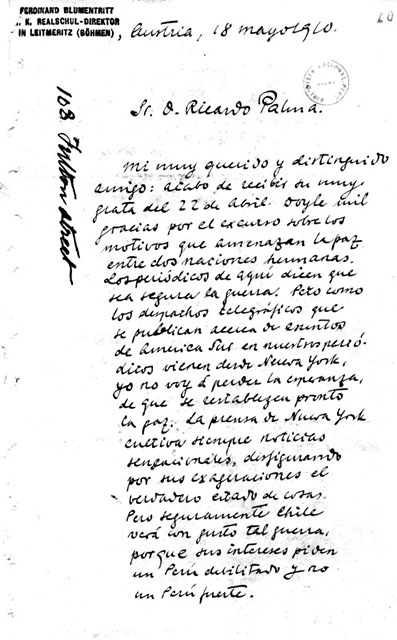 FERDINAND BLUMENTRITT
K. K. REALSCHUL-DIREKTOR
IN LEITMERITZ (BÖHMEN)
, Austria, 18 mayo 1910.
60
103. Fulton street
Sr. D. Ricardo Palma.
Mi muy querido y distinguido
amigo: acabo de recibir su muy
grata del 22 de abril. Doyle mil
gracias por el excurso sobre los
motivos que amenazan la paz
entre dos naciones hermanas.
Los periódicos de aquí dicen que
sea segura la guerra. Pero como
los despachos telegráficos que
se publican acerca de asuntos
de America Sur en nuestros perió-
dicos vienen desde Nueva York,
yo no voy á perder la esperanza,
de que se restablezca pronto
la paz. La prensa de Nueva York
cultiva siempre noticias
sensacionales, disfigurando
por sus exageraciones el
verdadero estado de cosas.
Pero seguramente Chile
verá con gusto tal guerra,
porque sus intereses piden
un Perú debilitado y no
un Perú fuerte.